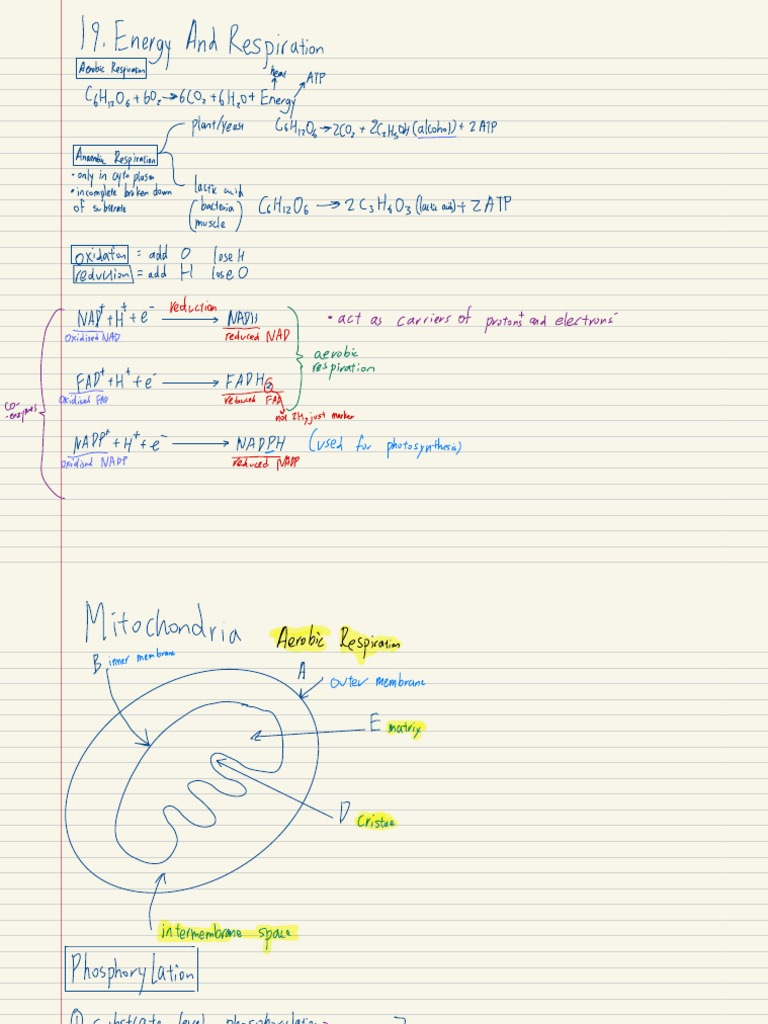 19. Energy And Respiration
Aerobic Respiration
heat
ATP
C₆H₁₂O₆ + 6O₂ → 6CO₂ + 6H₂O + Energy
plant/yeast
C₆H₁₂O₆ → 2CO₂ + 2C₂H₅OH (alcohol) + 2ATP
Anaerobic Respiration
• only in cytoplasm
• incomplete broken down
of substrate
lactic acid
(bacteria
muscle)
C₆H₁₂O₆ → 2C₃H₆O₃ (lactic acid) + 2ATP
oxidation = add O lose H
reduction = add H lose O
co-
-enzymes
NAD⁺ + H⁺ + e⁻ reduction → NADH
oxidised NAD
reduced NAD
• act as carriers of protons⁺ and electrons⁻
aerobic
respiration
FAD⁺ + H⁺ + e⁻ → FADH₂
oxidised FAD
reduced FAD
not 2H, just marker
NADP⁺ + H⁺ + e⁻ → NADPH (used for photosynthesis)
oxidised NADP
reduced NADP
Mitochondria
Aerobic Respiration
B inner membrane
A
outer membrane
E matrix
D cristae
intermembrane space
Phosphorylation
① substrate level phosphorylation